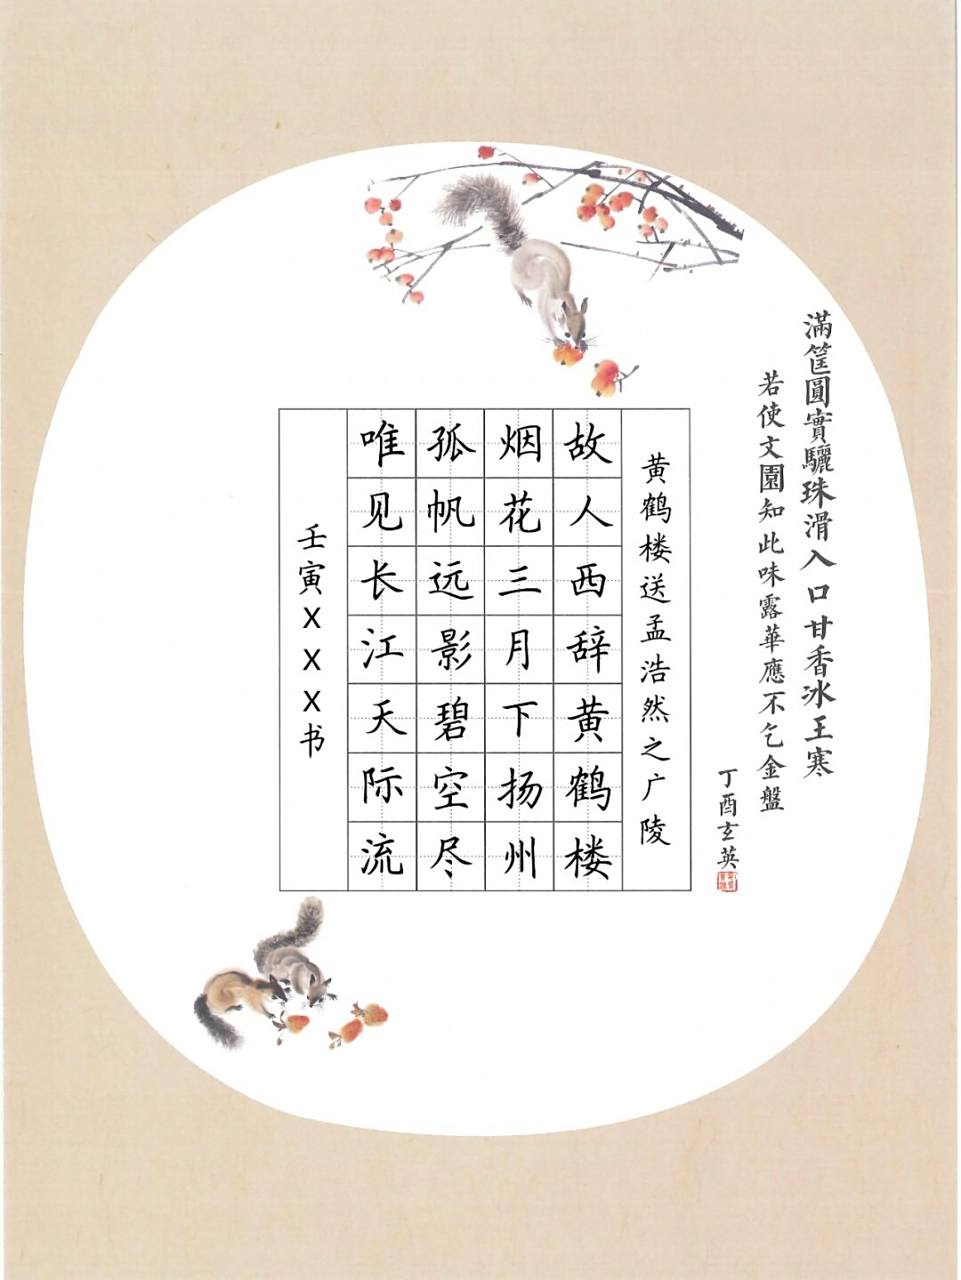 滿筐圓實驪珠滑入口甘香冰王寒
若使文園知此味露華應不乞金盤
丁酉玄英
黄鹤楼送孟浩然之广陵
故人西辞黄鹤楼
烟花三月下扬州
孤帆远影碧空尽
唯见长江天际流
壬寅XXX书